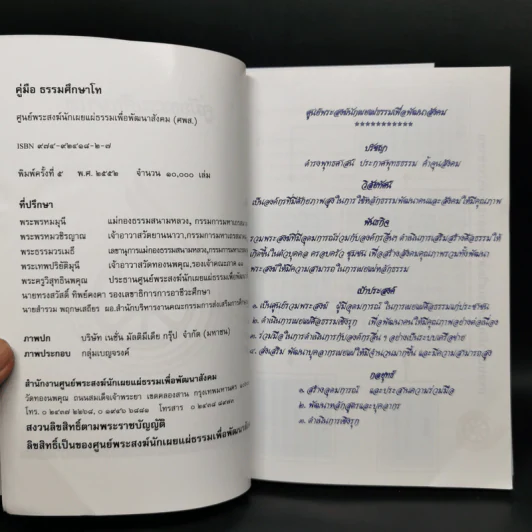 คู่มือ ธรรมศึกษาโท
ศูนย์พระสงฆ์นักเผยแผ่ธรรมเพื่อพัฒนาสังคม (ศพส.)
ISBN ๙๗๔-๙๒๔๑๘-๒-๗
พิมพ์ครั้งที่ ๕ พ.ศ. ๒๕๕๒ จำนวน ๑๐,๐๐๐ เล่ม
ที่ปรึกษา
พระพรหมมุนี แม่กองธรรมสนามหลวง, กรรมการมหาเถร
พระพรหมวชิรญาณ เจ้าอาวาสวัดยานนาวา, กรรมการมหาเถร
พระธรรมวรเมธี เลขานุการแม่กองธรรมสนามหลวง, กรรมการ
พระเทพปริยัติมุนี เจ้าอาวาสวัดทองนพคุณ, รองเจ้าคณะภาค
พระครูวิสุทธินพคุณ ประธานศูนย์พระสงฆ์นักเผยแผ่ธรรมเพื่อพัฒนา
นายทรงสวัสดิ์ ทิพย์คงคา รองเลขาธิการการอาชีวศึกษา
นายสำรวม พฤกษเสถียร ผอ.สำนักบริหารงานคณะกรรมการส่งเสริมการศึกษา
ภาพปก บริษัท เนชั่น มัลติมีเดีย กรุ๊ป จำกัด (มหาชน)
ภาพประกอบ กลุ่มเบญจรงค์
สำนักงานศูนย์พระสงฆ์นักเผยแผ่ธรรมเพื่อพัฒนาสังคม
วัดทองนพคุณ ถนนสมเด็จเจ้าพระยา เขตคลองสาน กรุงเทพมหานคร
โทร. โทรสาร
สงวนลิขสิทธิ์ตามพระราชบัญญัติ
ลิขสิทธิ์เป็นของศูนย์พระสงฆ์นักเผยแผ่ธรรมเพื่อพัฒนา
ศูนย์พระสงฆ์นักเผยแผ่ธรรมเพื่อพัฒนาสังคม
***********
ปรัชญา
ดำรงพุทธศาสน์ ประกาศพุทธธรรม ค้ำจุนสังคม
วิสัยทัศน์
เป็นองค์กรที่มีศักยภาพสูง ในการใช้หลักธรรมพัฒนาคนและสังคมให้มีคุณภาพ
พันธกิจ
รวมพระสงฆ์ที่มีอุดมการณ์ร่วมกับองค์กรอื่นๆ ดำเนินการเสริมสร้างศีลธรรมให้
เกิดขึ้นในตัวบุคคล ครอบครัว ชุมชน เพื่อสร้างสังคมคุณภาพรวมทั้งพัฒนา
พระสงฆ์ให้มีความสามารถ ในการเผยแผ่หลักธรรม
เป้าประสงค์
๑. เป็นศูนย์รวมพระสงฆ์ ผู้มีอุดมการณ์ ในการเผยแผ่ศีลธรรมแก่ประชาชน
๒. ดำเนินการเผยแผ่ศีลธรรมเชิงรุก เพื่อพัฒนาคนให้มีคุณภาพอย่างต่อเนื่อง
๓. ร่วมมือ ในการดำเนินการกับองค์กรอื่น ๆ อย่างเป็นระบบเครือข่าย
๔. ส่งเสริม พัฒนาบุคลากรเผยแผ่ให้มีจำนวนมากขึ้น และมีความสามารถสูง
กลยุทธ์
๑. สร้างอุดมการณ์ และประสานความร่วมมือ
๒. พัฒนาหลักสูตรและบุคลากร
๓. ดำเนินการเชิงรุก